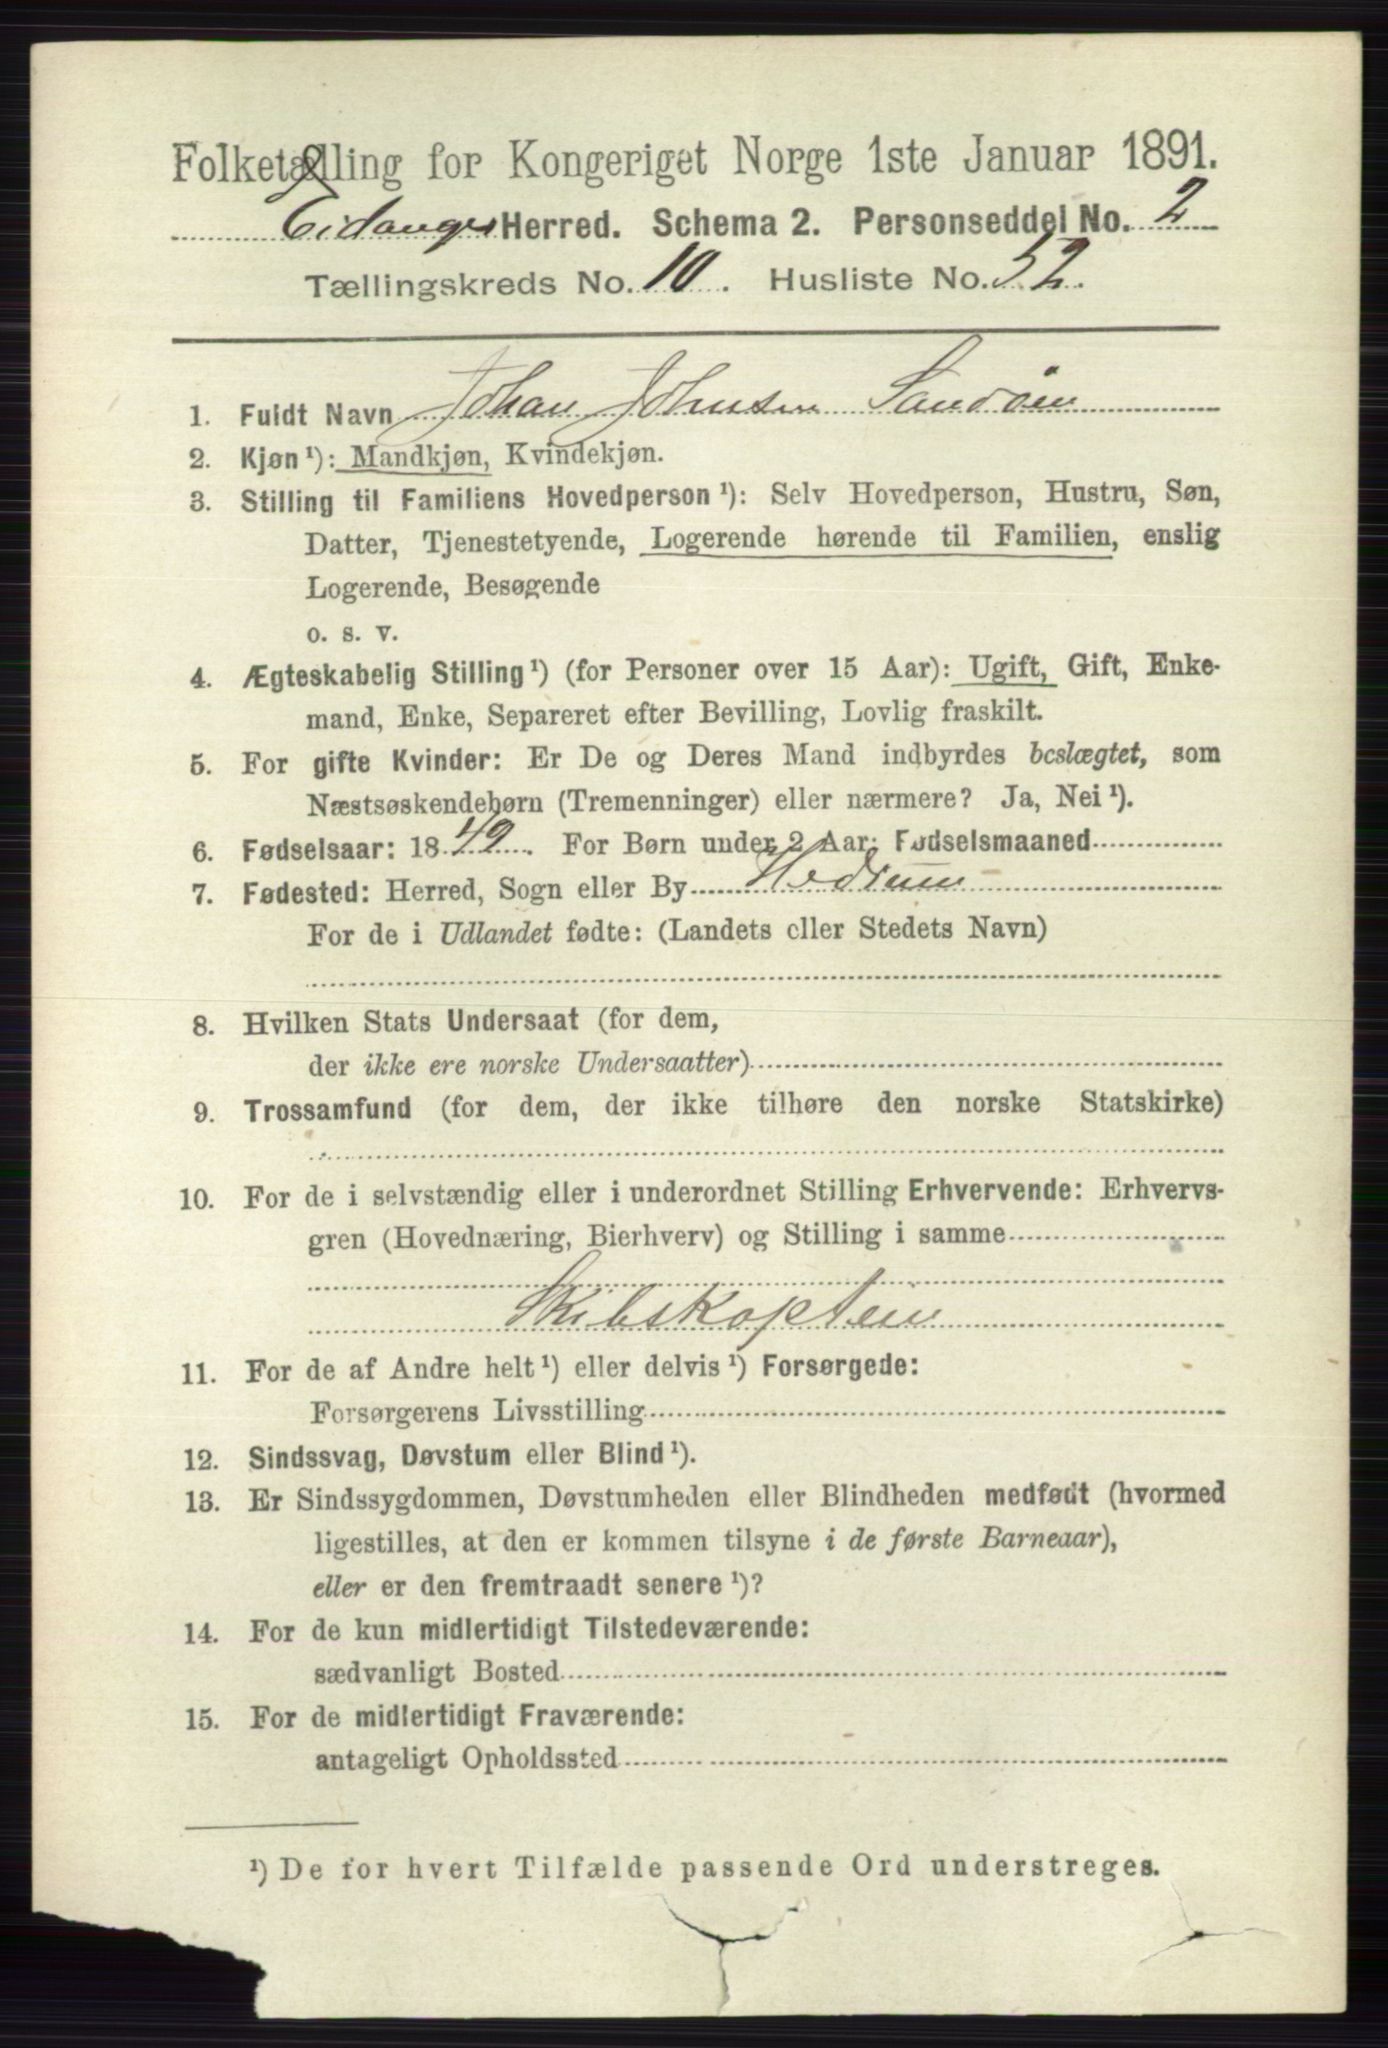 Folketælling for Kongeriget Norge 1ste Januar 1891.
Eidanger Herred. Schema 2. Personseddel No. 2
Tællingskreds No. 10. Husliste No. 52.
1. Fuldt Navn Johan Johnsen Sandøen
2. Kjøn ¹): Mandkjøn, Kvindekjøn.
3. Stilling til Familiens Hovedperson ¹): Selv Hovedperson, Hustru, Søn,
Datter, Tjenestetyende, Logerende hørende til Familien, enslig
Logerende, Besøgende
o. s. v.
4. Ægteskabelig Stilling ¹) (for Personer over 15 Aar): Ugift, Gift, Enke-
mand, Enke, Separeret efter Bevilling, Lovlig fraskilt.
5. For gifte Kvinder: Er De og Deres Mand indbyrdes beslægtet, som
Næstsøskendebørn (Tremenninger) eller nærmere? Ja, Nei ¹).
6. Fødselsaar: 1849. For Børn under 2 Aar: Fødselsmaaned
7. Fødested: Herred, Sogn eller By Hedrum
For de i Udlandet fødte: (Landets eller Stedets Navn)
8. Hvilken Stats Undersaat (for dem,
der ikke ere norske Undersaatter)
9. Trossamfund (for dem, der ikke tilhøre den norske Statskirke)
10. For de i selvstændig eller i underordnet Stilling Erhvervende: Erhvervs-
gren (Hovednæring, Bierhverv) og Stilling i samme
Skibskaptein
11. For de af Andre helt ¹) eller delvis ¹) Forsørgede:
Forsørgerens Livsstilling
12. Sindssvag, Døvstum eller Blind ¹).
13. Er Sindssygdommen, Døvstumheden eller Blindheden medfødt (hvormed
ligestilles, at den er kommen tilsyne i de første Barneaar),
eller er den fremtraadt senere ¹)?
14. For de kun midlertidigt Tilstedeværende:
sædvanligt Bosted
15. For de midlertidigt Fraværende:
antageligt Opholdssted
¹) De for hvert Tilfælde passende Ord understreges.